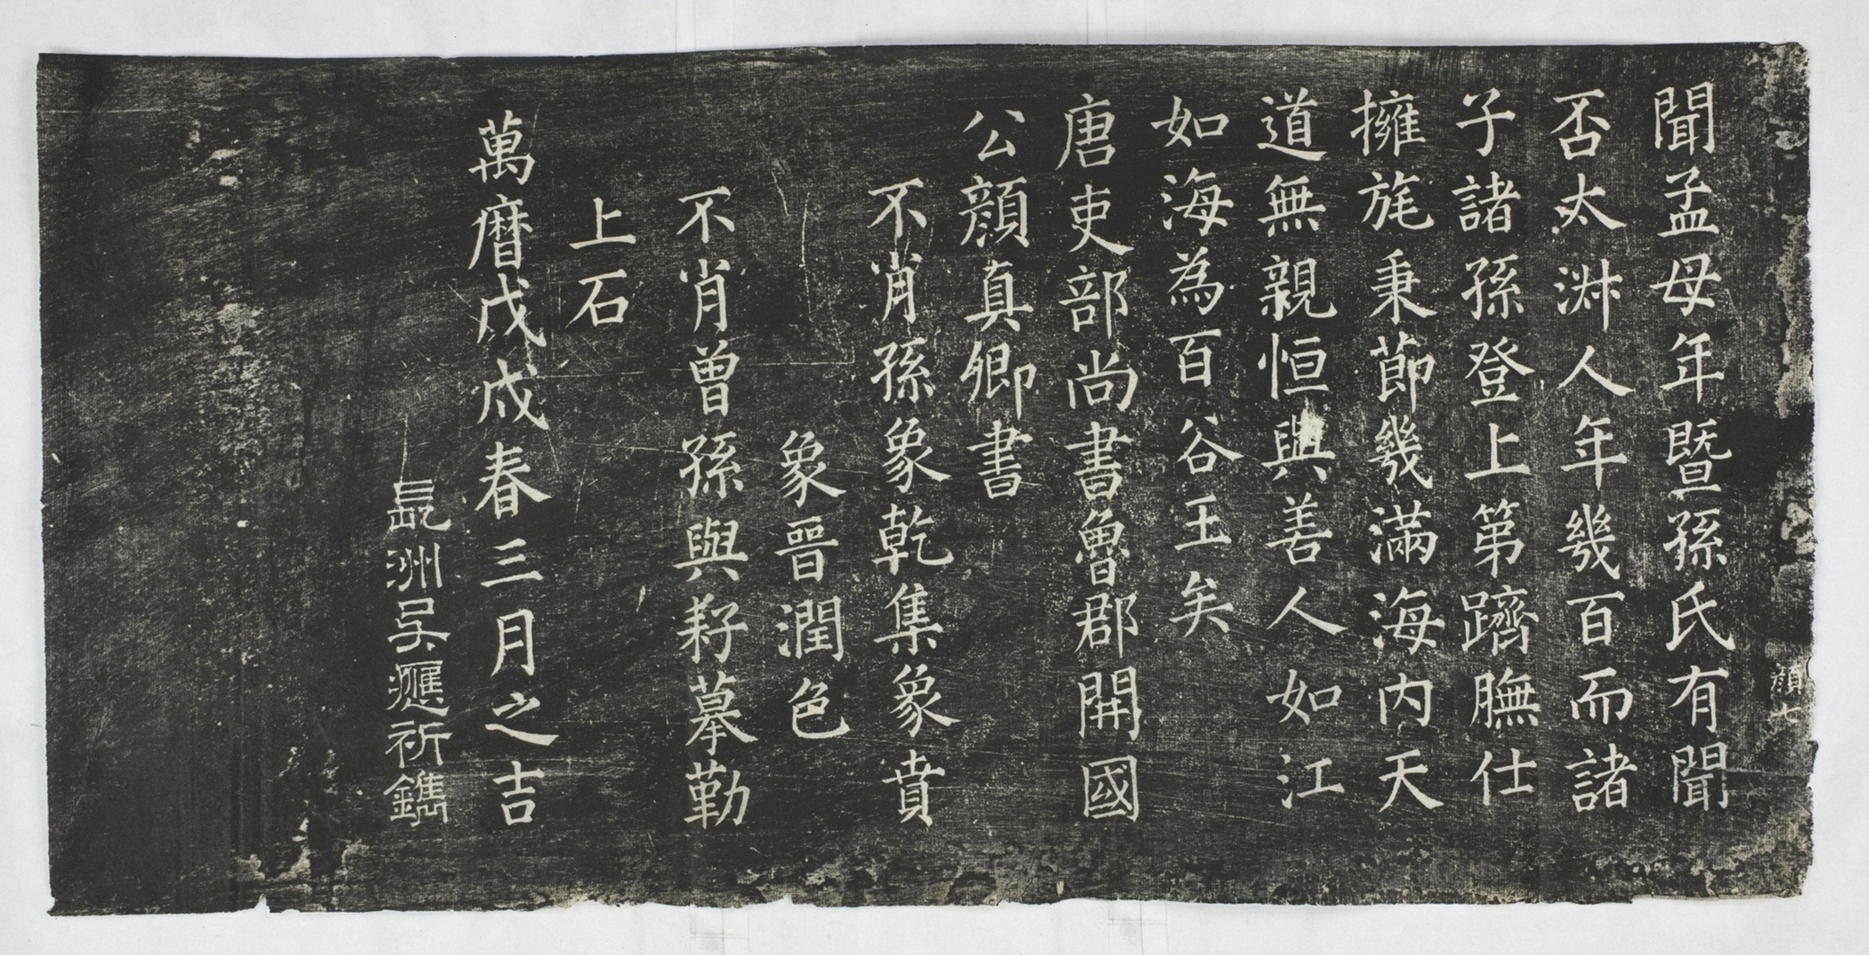 顔七
聞孟母年暨孫氏有聞
否太淑人年幾百而諸
子諸孫登上第躋膴仕
擁旄秉節幾滿海内天
道無親恒與善人如江
如海為百谷王矣
唐吏部尚書魯郡開國
公顔真卿書
不肖孫象乾集象賁
象晉潤色
不肖曾孫與耔摹勒
上石
萬曆戊戌春三月之吉
長洲吴應祈鐫